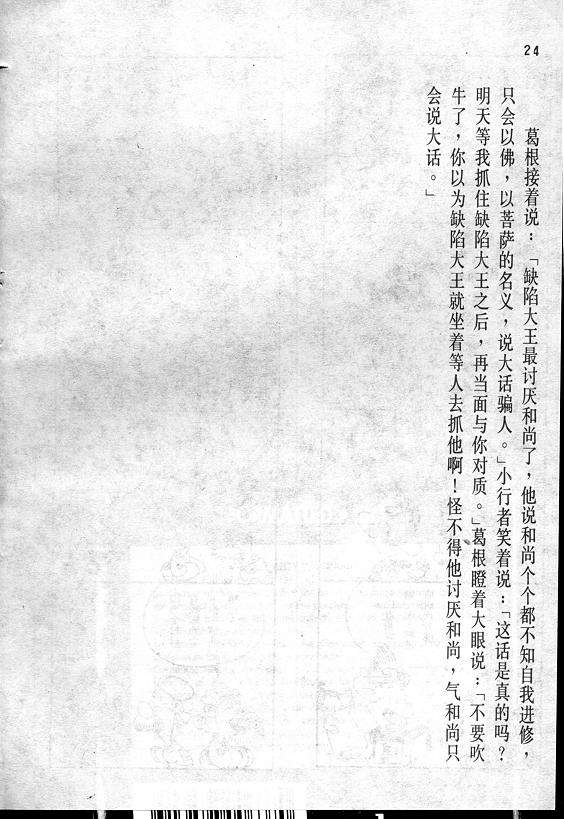 24
葛根接着说：「缺陷大王最讨厌和尚了，他说和尚个个都不知自我进修，
只会以佛，以菩萨的名义，说大话骗人。」小行者笑着说：「这话是真的吗？
明天等我抓住缺陷大王之后，再当面与你对质。」葛根瞪着大眼说：「不要吹
牛了，你以为缺陷大王就坐着等人去抓他啊！怪不得他讨厌和尚，气和尚只
会说大话。」